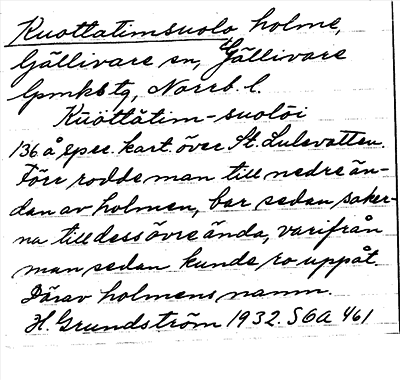 Kuottatimsuolo holme,
Gällivare sn, Gällivare
lpmks tg, Norrb. l.
Kuottåtim-suolọi
136 å spec. kart. över St. Lulevatten.
Förr rodde man till nedre än-
dan av holmen, bar sedan saker-
na till dess övre ända, varifrån
man sedan kunde ro uppåt.
Därav holmens namn.
H. Grundström 1932. SOA 461